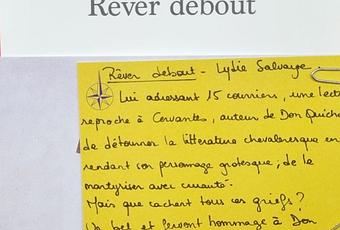 Rêver debout
Rêver debout - Lydie Salvayre.
Lui adressant 15 courriers, une lect
reproche à Cervantes, auteur de Don Quicho
de détourner la littérature chevaleresque en
rendant son personnage grotesque ; de le
martyriser avec cruauté.
Mais que cachent tous ces griefs ?
Un bel et fervent hommage à Don